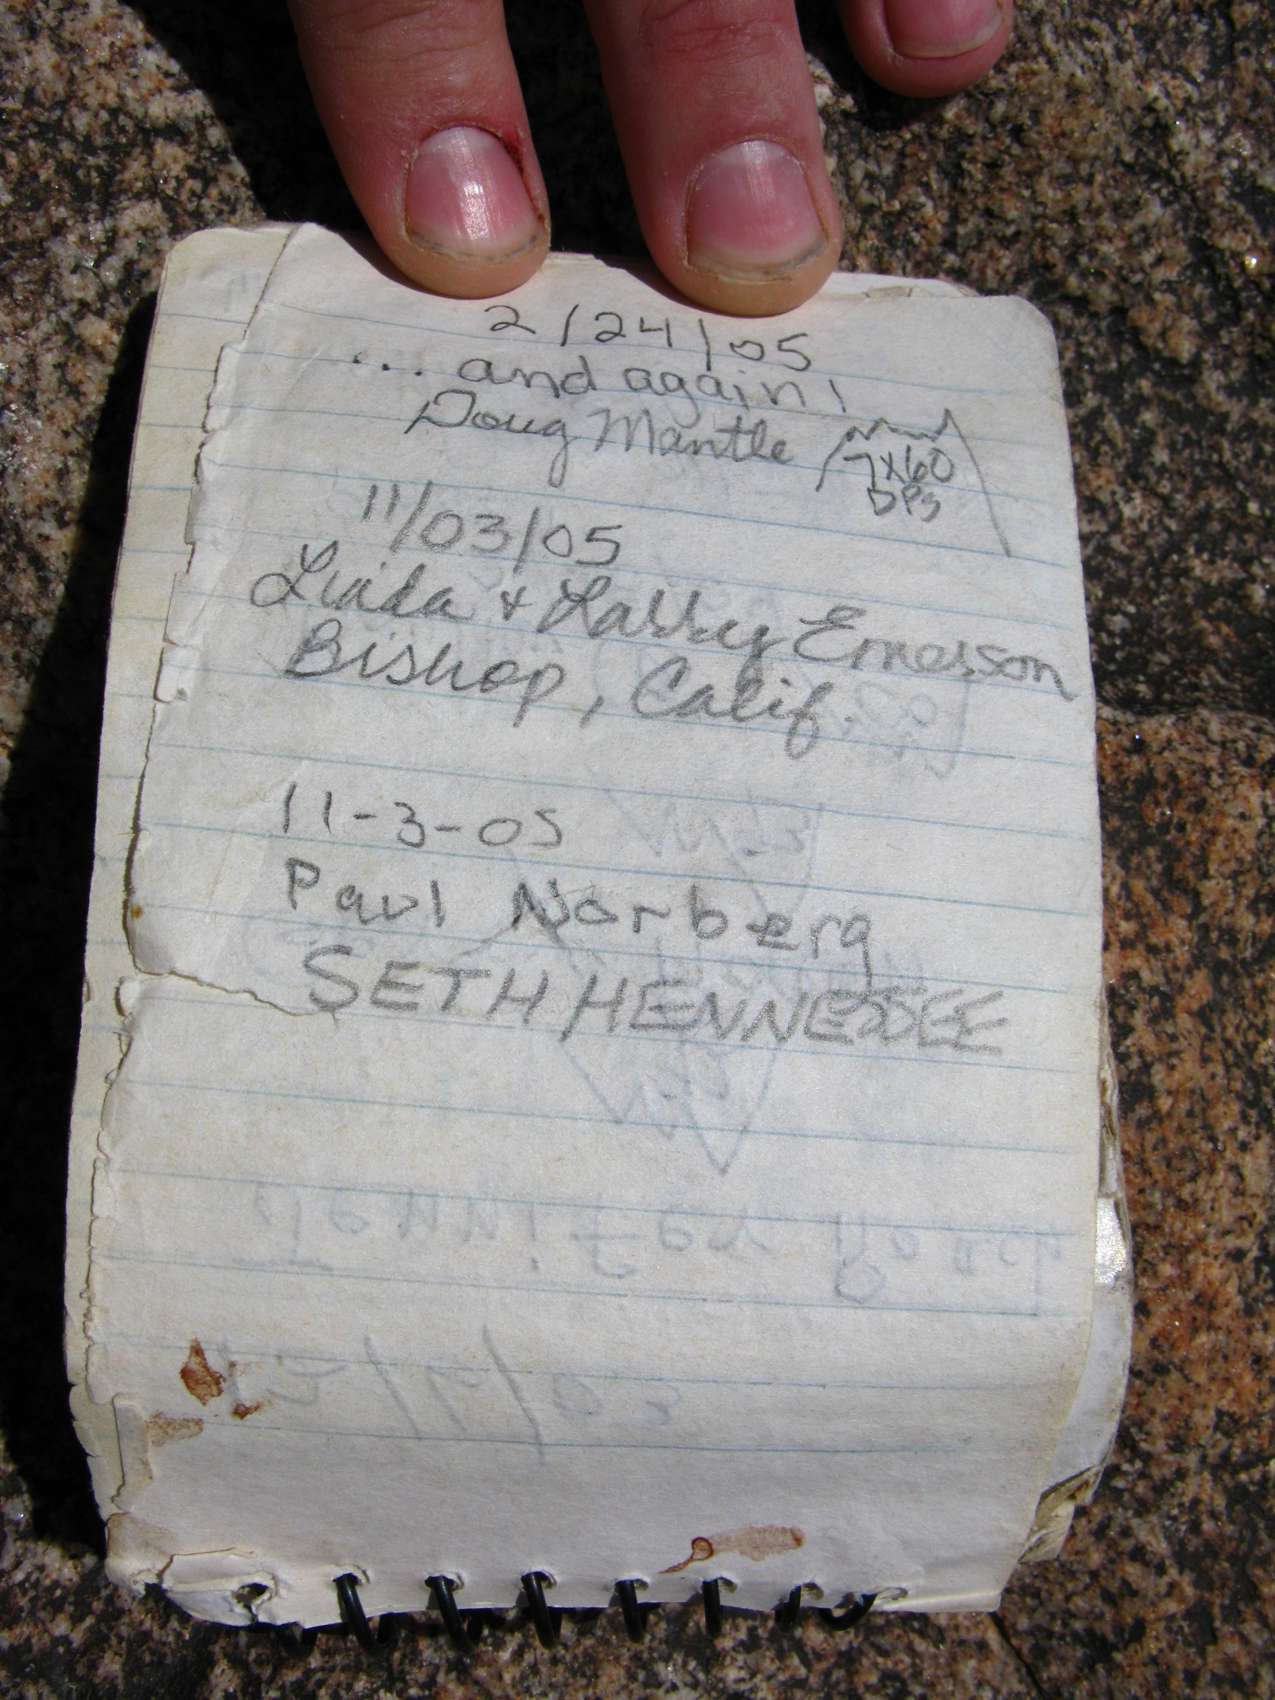 2/24/05
... and again!
Doug Mantle
7x60
DPS
11/03/05
Linda + Larry Emerson
Bishop, Calif.
11-3-05
Paul Norberg
SETH HENNESSEE